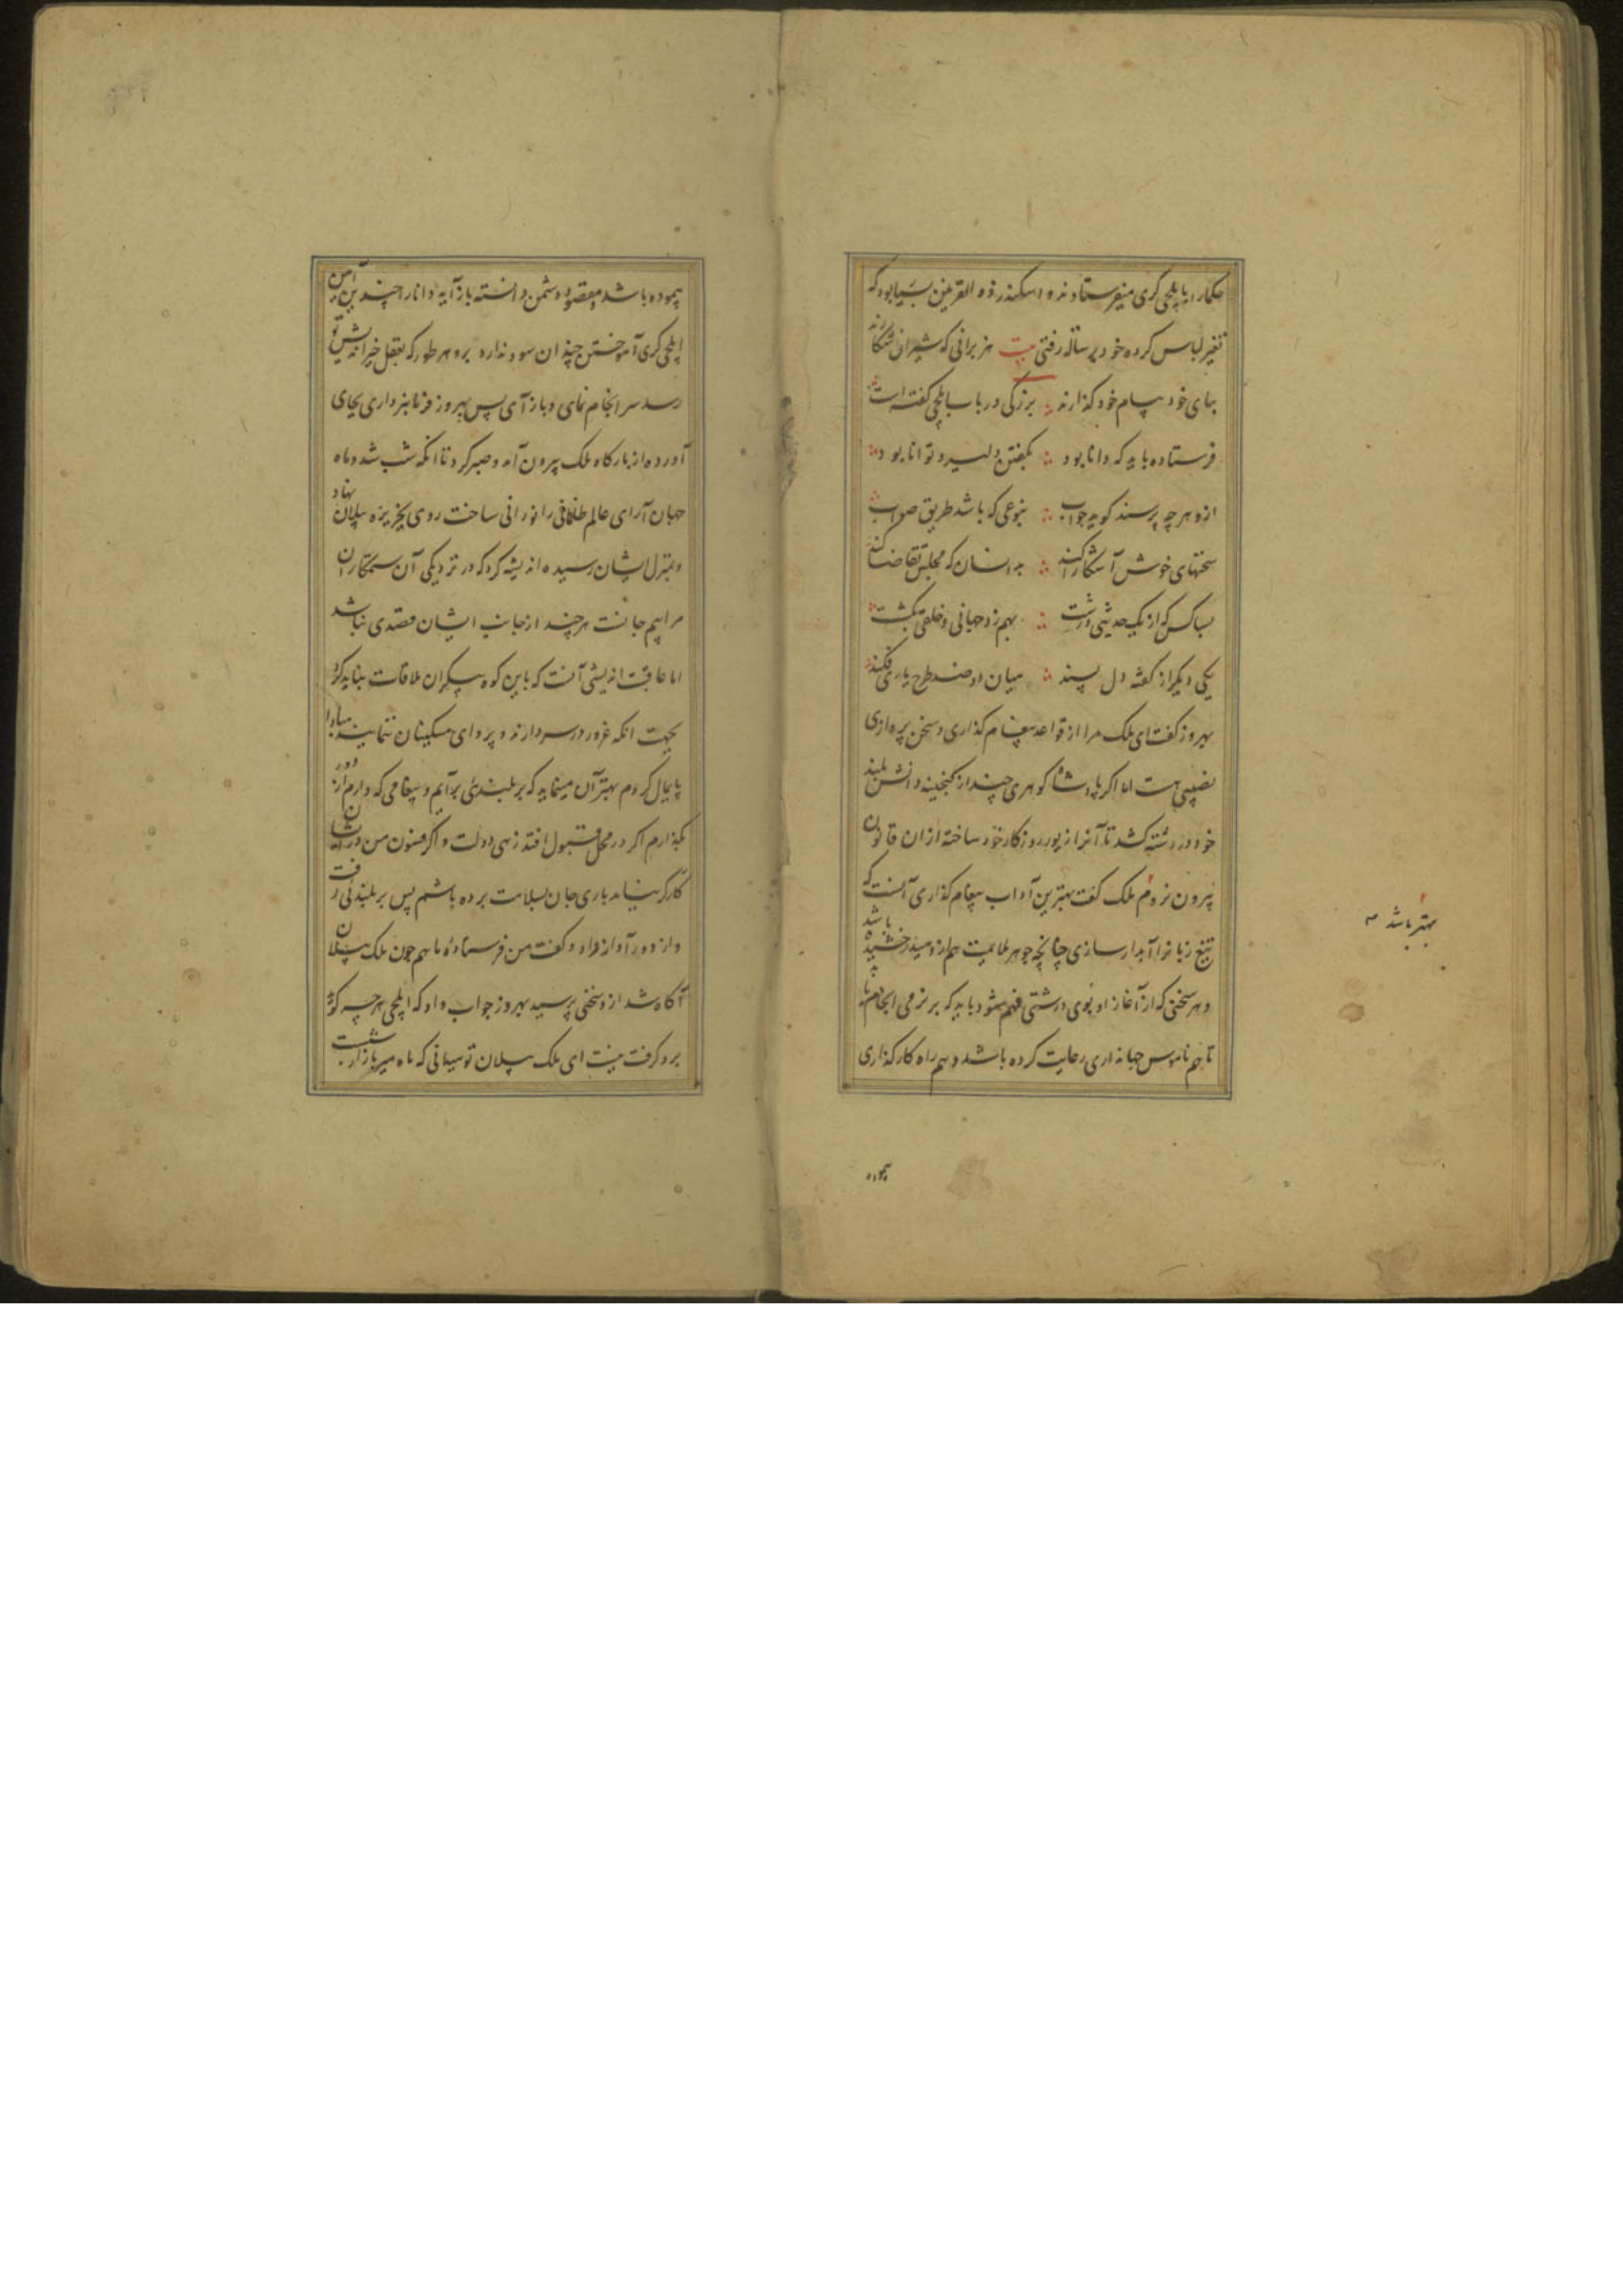 حکما را بایلچی گری میفرستادند و اسکندر ذو القرنین بسیار بود که
تغییر لباس کرده خود برسالة رفتی بیت هزبرانی که شیران شکارند
بپای خود پیام خود گذارند بزرگی در باب ایلچی گفته است
فرستاده باید که دانا بود بگفتن دلیر و توانا بود
ازو هر چه پرسند گوید جواب بنوعی که باشد طریق صواب
سخنهای خوش آشکارا کند بدانسان که مجلس تقاضا کند
بسا کس که از یک حدیثی درشت بهم زد جهانی و خلقی بکشت
یکی دیگر از گفته دل پسند میان دو ضد طرح یاری فکند
بهروز گفت ای ملک مرا از قواعد پیغام گذاری و سخن پردازی
نصیبی هست اما اگر پادشاه گوهری چند از گنجینه دانش بلند
خود در رشته کشد تا آنرا زیور روزگار خود ساخته از ان قانون
بیرون نروم ملک گفت بهترین آداب پیغام گذاری آنست که
تیغ زبانرا آبدار سازی چنانچه جوهر ملایمت هم ازو میدرخشیده باشد
و هر سخنی که از آغاز او بوی درشتی فهم شود باید که بر نرمی انجام یابد
تا هم ناموس جهانداری رعایت کرده باشد و هم راه کارگذاری
بهتر باشد
پیموده
پیموده باشد و مقصود دشمن دانسته باز آید و دانا را چندین آیین
ایلچی گری آموختن چندان سود ندارد برو هر طور که بعقل خیراندیش تو
رسد سر انجام نمای و باز آی پس بهروز فرمانبرداری بجای
آورده از بارگاه ملک بیرون آمد و صبر کرد تا انکه شب شد و ماه
جهان آرای عالم ظلمانی را نورانی ساخت روی بجزیره پیلان نهاد
و بمنزل ایشان رسیده اندیشه کرد که در نزدیکی آن ستمکاران
مرا بیم جانست هر چند از جانب ایشان قصدی نباشد
اما عاقبت اندیشی آنست که باین کوه پیکران ملاقات نباید کرد
بجهت انکه غرور در سر دارند و پروای مسکینان ننمایند مبادا
پایمال گردم بهتر آن مینماید که بر بلندی برآیم و پیغامی که دارم از دور
بگذارم اگر در محل قبول افتد زهی دولت و اگر فسون من در ایشان
کارگر نیاید باری جان بسلامت برده باشم پس بر بلندی رفت
و از دور آواز داد و گفت من فرستاده ماهم چون ملک پیلان
آگاه شد ازو سخنی پرسید بهروز جواب داد که ایلچی هر چه گوید
برو گرفت نیست ای ملک پیلان تو میدانی که ماه میر بازار شب